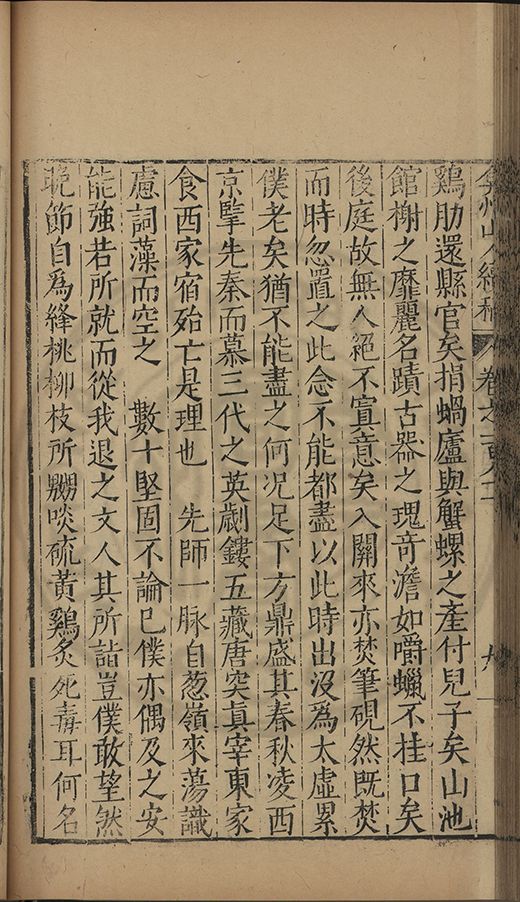 弇州山人續稿 卷之一百八十二 九
鷄肋還縣官矣捐蝸廬與蟹螺之產付兒子矣山池
館榭之靡麗名蹟古器之瑰竒澹如嚼蠟不挂口矣
後庭故無人絕不寘意矣入關來亦焚筆硯然旣焚
而時忽置之此念不能都盡以此時出沒爲太虛累
僕老矣猶不能盡之何況足下方鼎盛其春秋凌西
京掔先秦而慕三代之英劌鏤五藏唐突眞宰東家
食西家宿殆亡是理也 先師一脉自葱嶺來蕩識
慮詞藻而空之 數十堅固不論已僕亦偶及之安
能強若所就而從我退之文人其所詣豈僕敢望然
晩節自爲絳桃柳枝所嬲啖硫黃鷄炙死毒耳何名